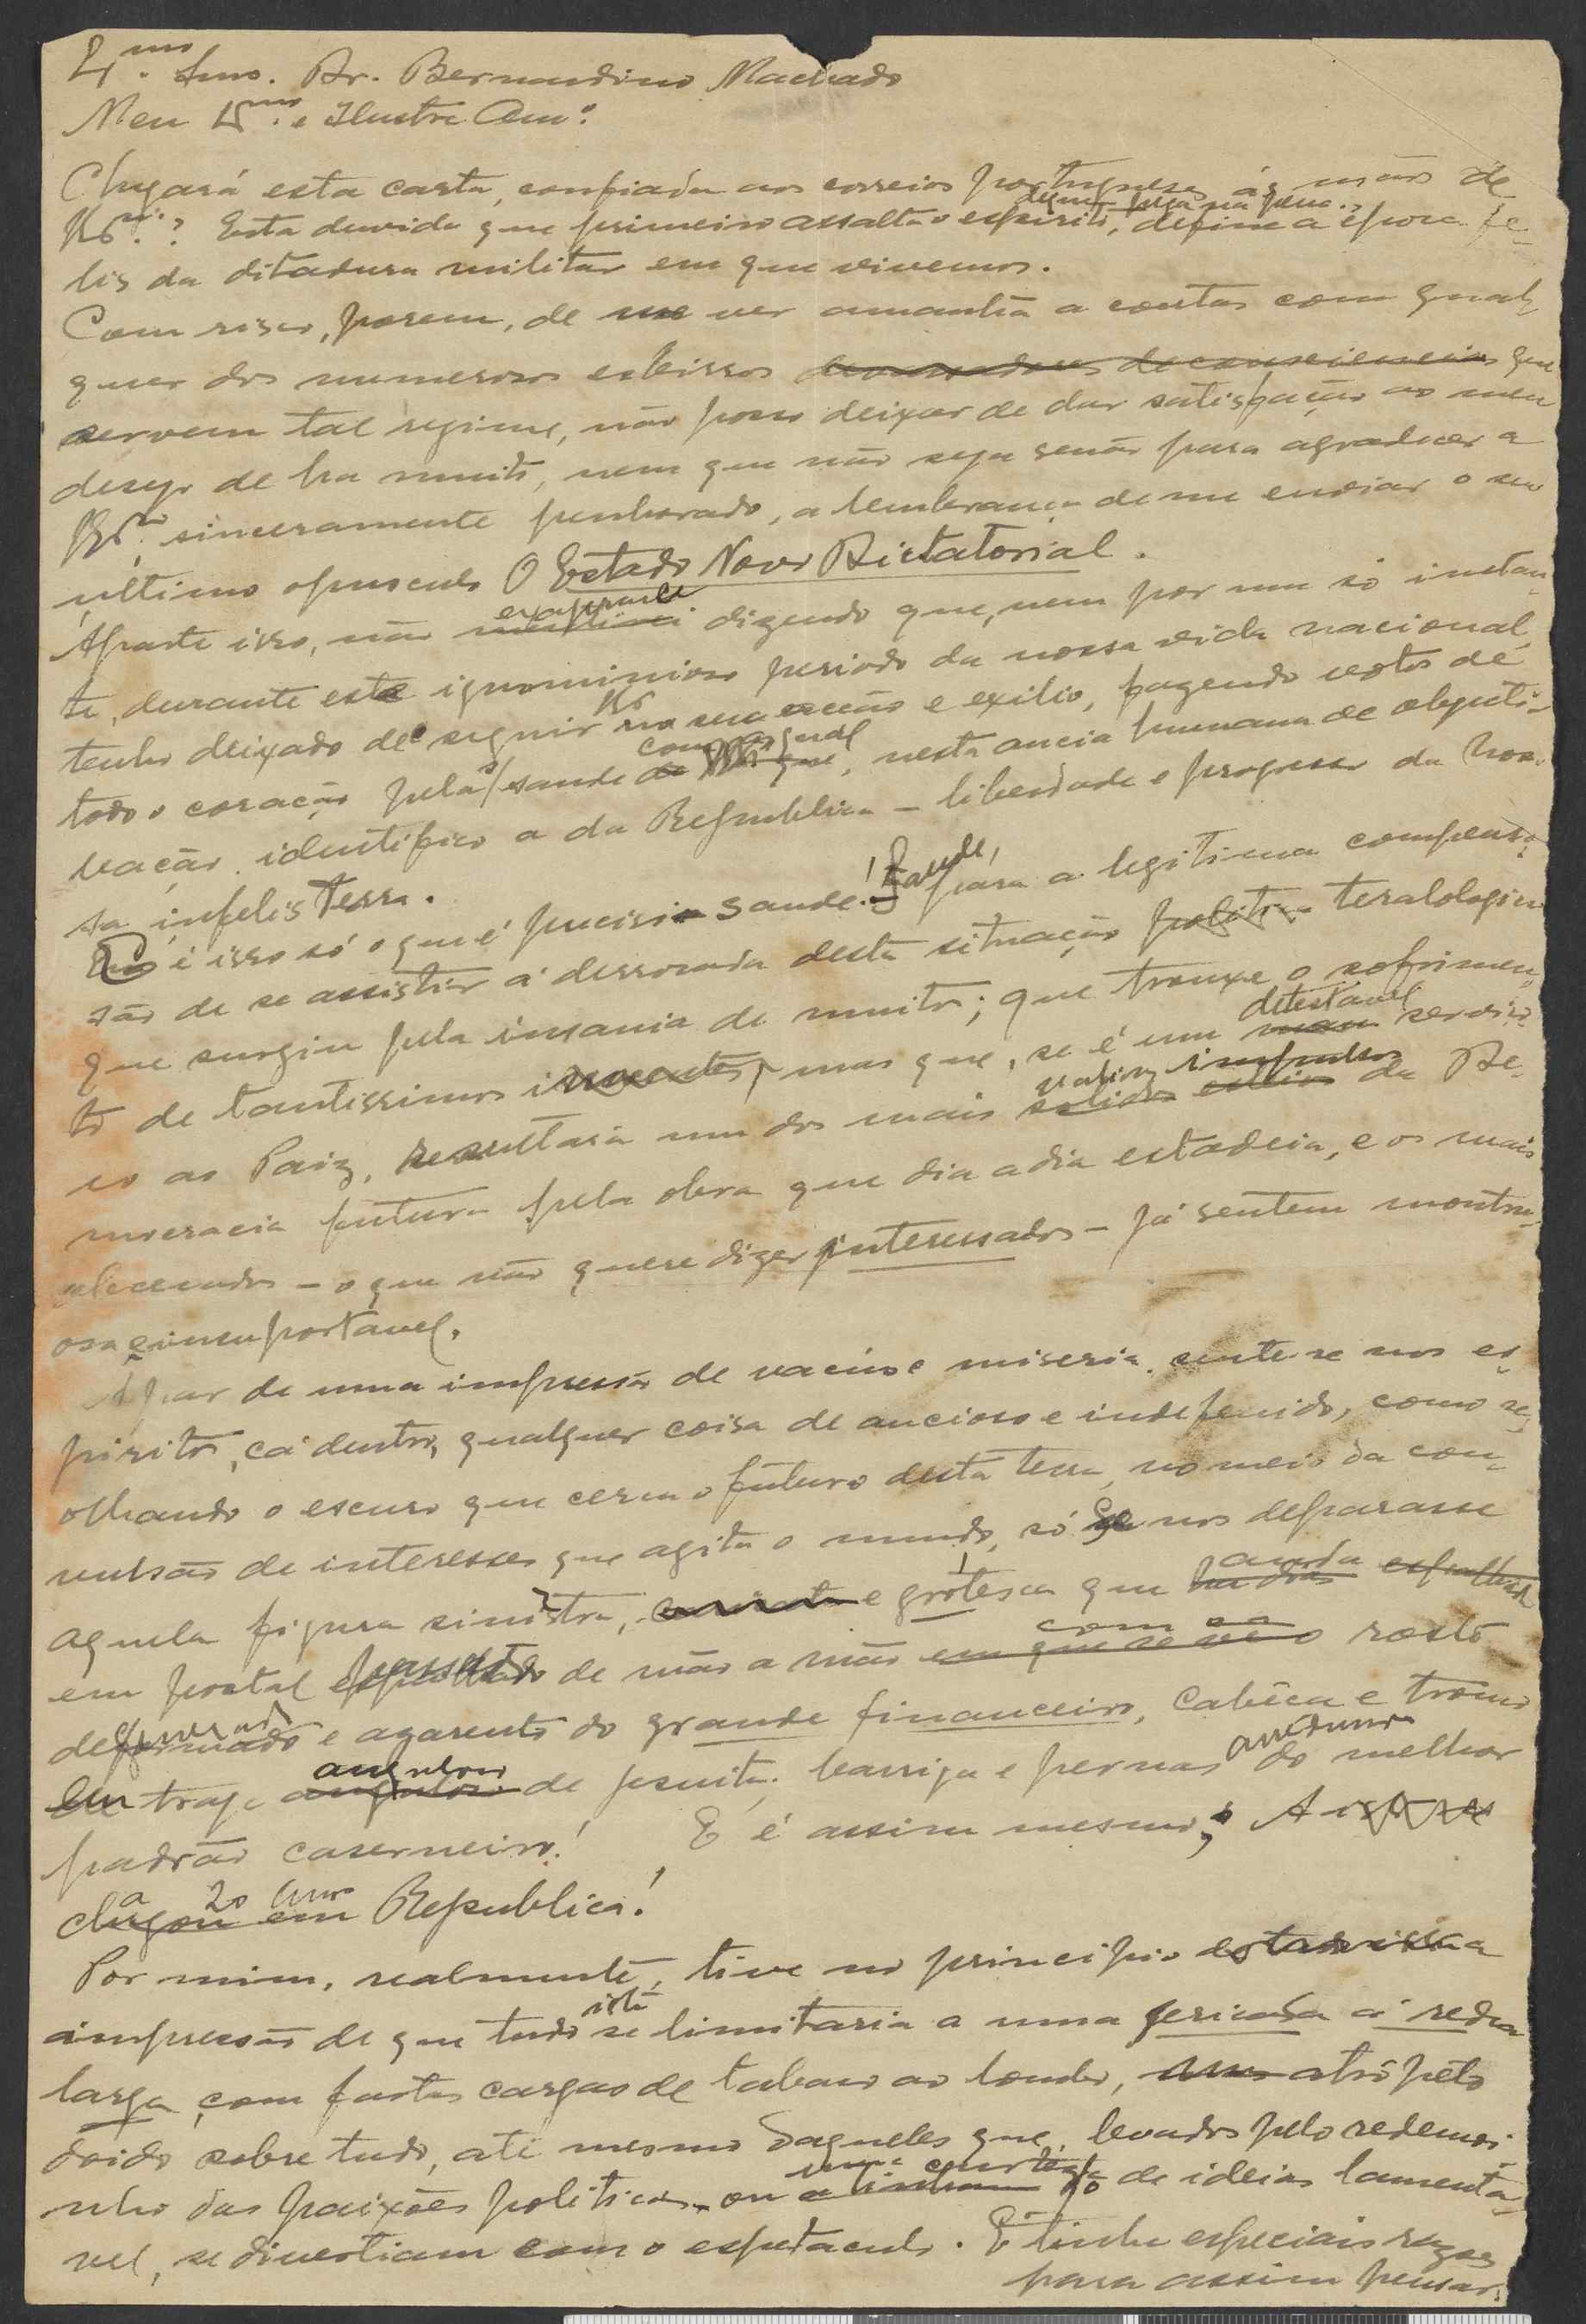 Exmo. Snr. Dr. Bernardino Machado
Meu Exmo. e Ilustre Amº.
Chegará esta carta, confiada aos correios portugueses, ás mãos de
V. Ex.ª? Esta duvida que primeiro assalta o espirito, define a época fe-
lis da ditadura militar em que vivemos.
Com risco, porem, de me ver amanhã a contas com qual-
quer dos numerosos esbirros devassadores de consciencias que
servem tal regime, não posso deixar de dar satisfação ao meu
desejo de ha muito, nem que não seja senão para agradecer a
V. Ex.ª, sinceramente penhorado, a lembrança de me enviar o seu
ultimo opusculo O Estado Novo Dictatorial.
Áparte isso, não exagerarei dizendo que, nem por um só instan-
te, durante este ignominioso periodo da nossa vida nacional
tenho deixado de seguir V. Ex. na sua acção e exilio, fazendo votos de
todo o coração pela saude com a qual, nesta ancia humana de objecti-
vação, identifico a da Republica – liberdade e progresso da nos-
sa infelis Terra.
E é isso só o que é preciso saude! Saude, para a legitima compensa-
são de se assistir á derrocada desta situação politica teratologica
que surgiu pela insania de muitos; que trouxe o sofrimen-
to de tantissimos inocentes, mas que, se é um detestavel servi-
ço ao Paiz, resultará um dos mais solidos esteios impulsos da De-
mocracia futura pela obra que dia a dia estadeia, e os mais
obcecados – o que não quere dizer interessados – já sentem monstru-
osa e insuportavel.
Á par de uma impressão de vacuo e miseria, sente-se nos es-
piritos, cá dentro, qualquer coisa de ancioso e indefenido, como se,
olhando o escuro que cerca o futuro desta terra, no meio da con-
vulsão de interesses que agita o mundo, só se nos deparasse
aquela figura sinistra, e grotesca que ha dias anda espalhada
em postal passado de mão a mão em que se vê com o rosto
deformado e azarento do grande financeiro, cabeça e tronco
em traje anguloso de jesuita, barriga e pernas do melhor
padrão caserneiro! E é assim mesmo;
chegou em a 20 anos Republica!
Por mim, realmente, tive no principio
impressão de que tudo isto se limitaria a uma gericada á redea
larga, com fortes cargas de tabaco ao lombo, atrópelo
doido sobre tudo, até mesmo daqueles que, levados pelo redemoi-
nho das paixões politicas, ou de ideias lamenta-
vel, se divertiam com o espectaculo. E tinha especiais razões
para assim pensar.